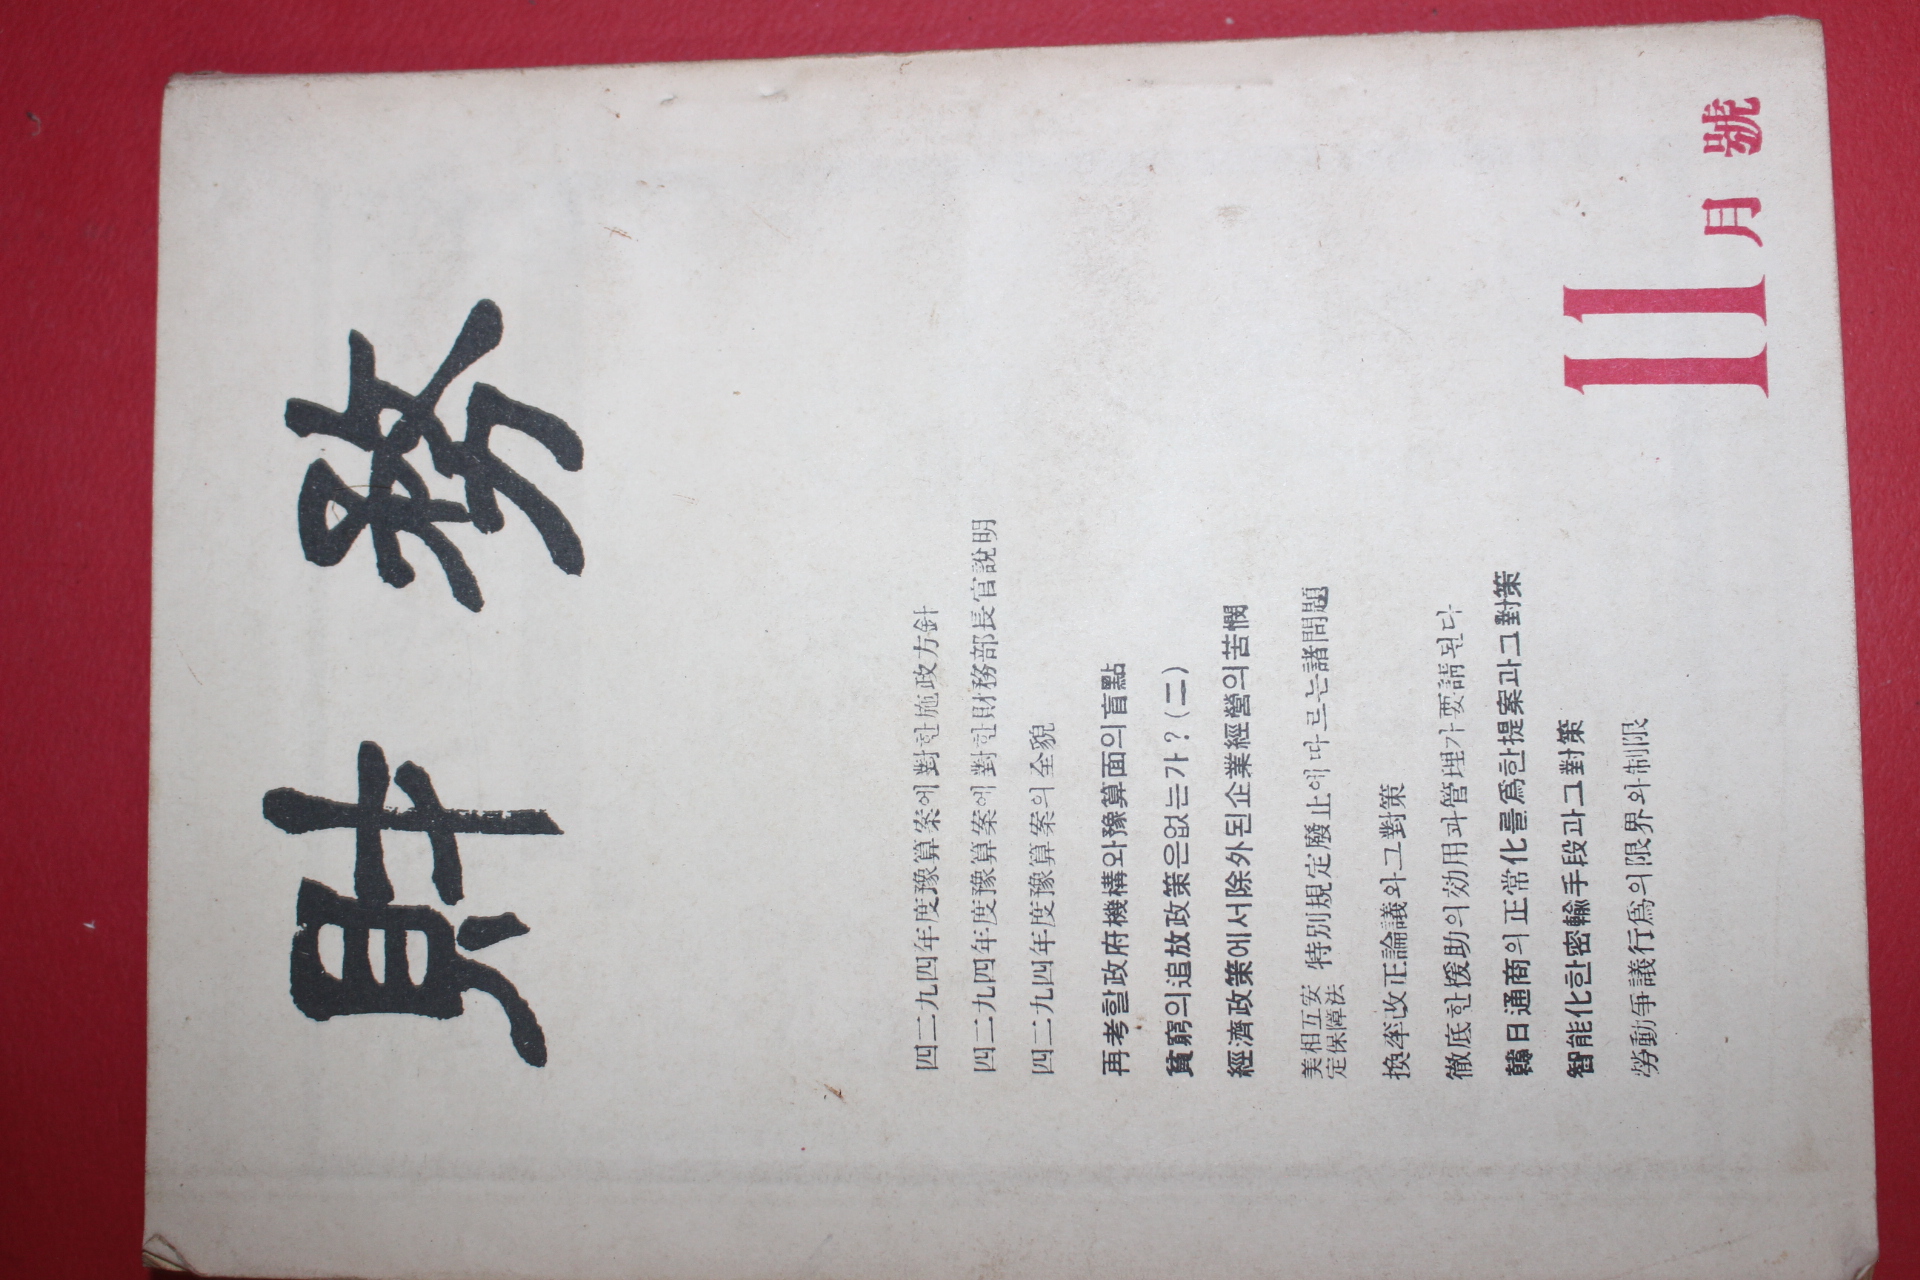 財務
四二九四年度豫算案에 對한 施政方針
四二九四年度豫算案에 對한 財務部長官說明
四二九四年度豫算案의 全貌
再考할 政府機構와 豫算面의 盲點
貧窮의 追放政策은 없는가? (二)
經濟政策에서 除外된 企業經營의 苦憫
美相互安
定保障法 特別規定廢止에 따르는 諸問題
換率改正論議와 그 對策
徹底한 援助의 効用과 管理가 要請된다
韓日通商의 正常化를 爲한 提案과 그 對策
智能化한 密輸手段과 그 對策
勞動爭議行爲의 限界와 制限
11月號